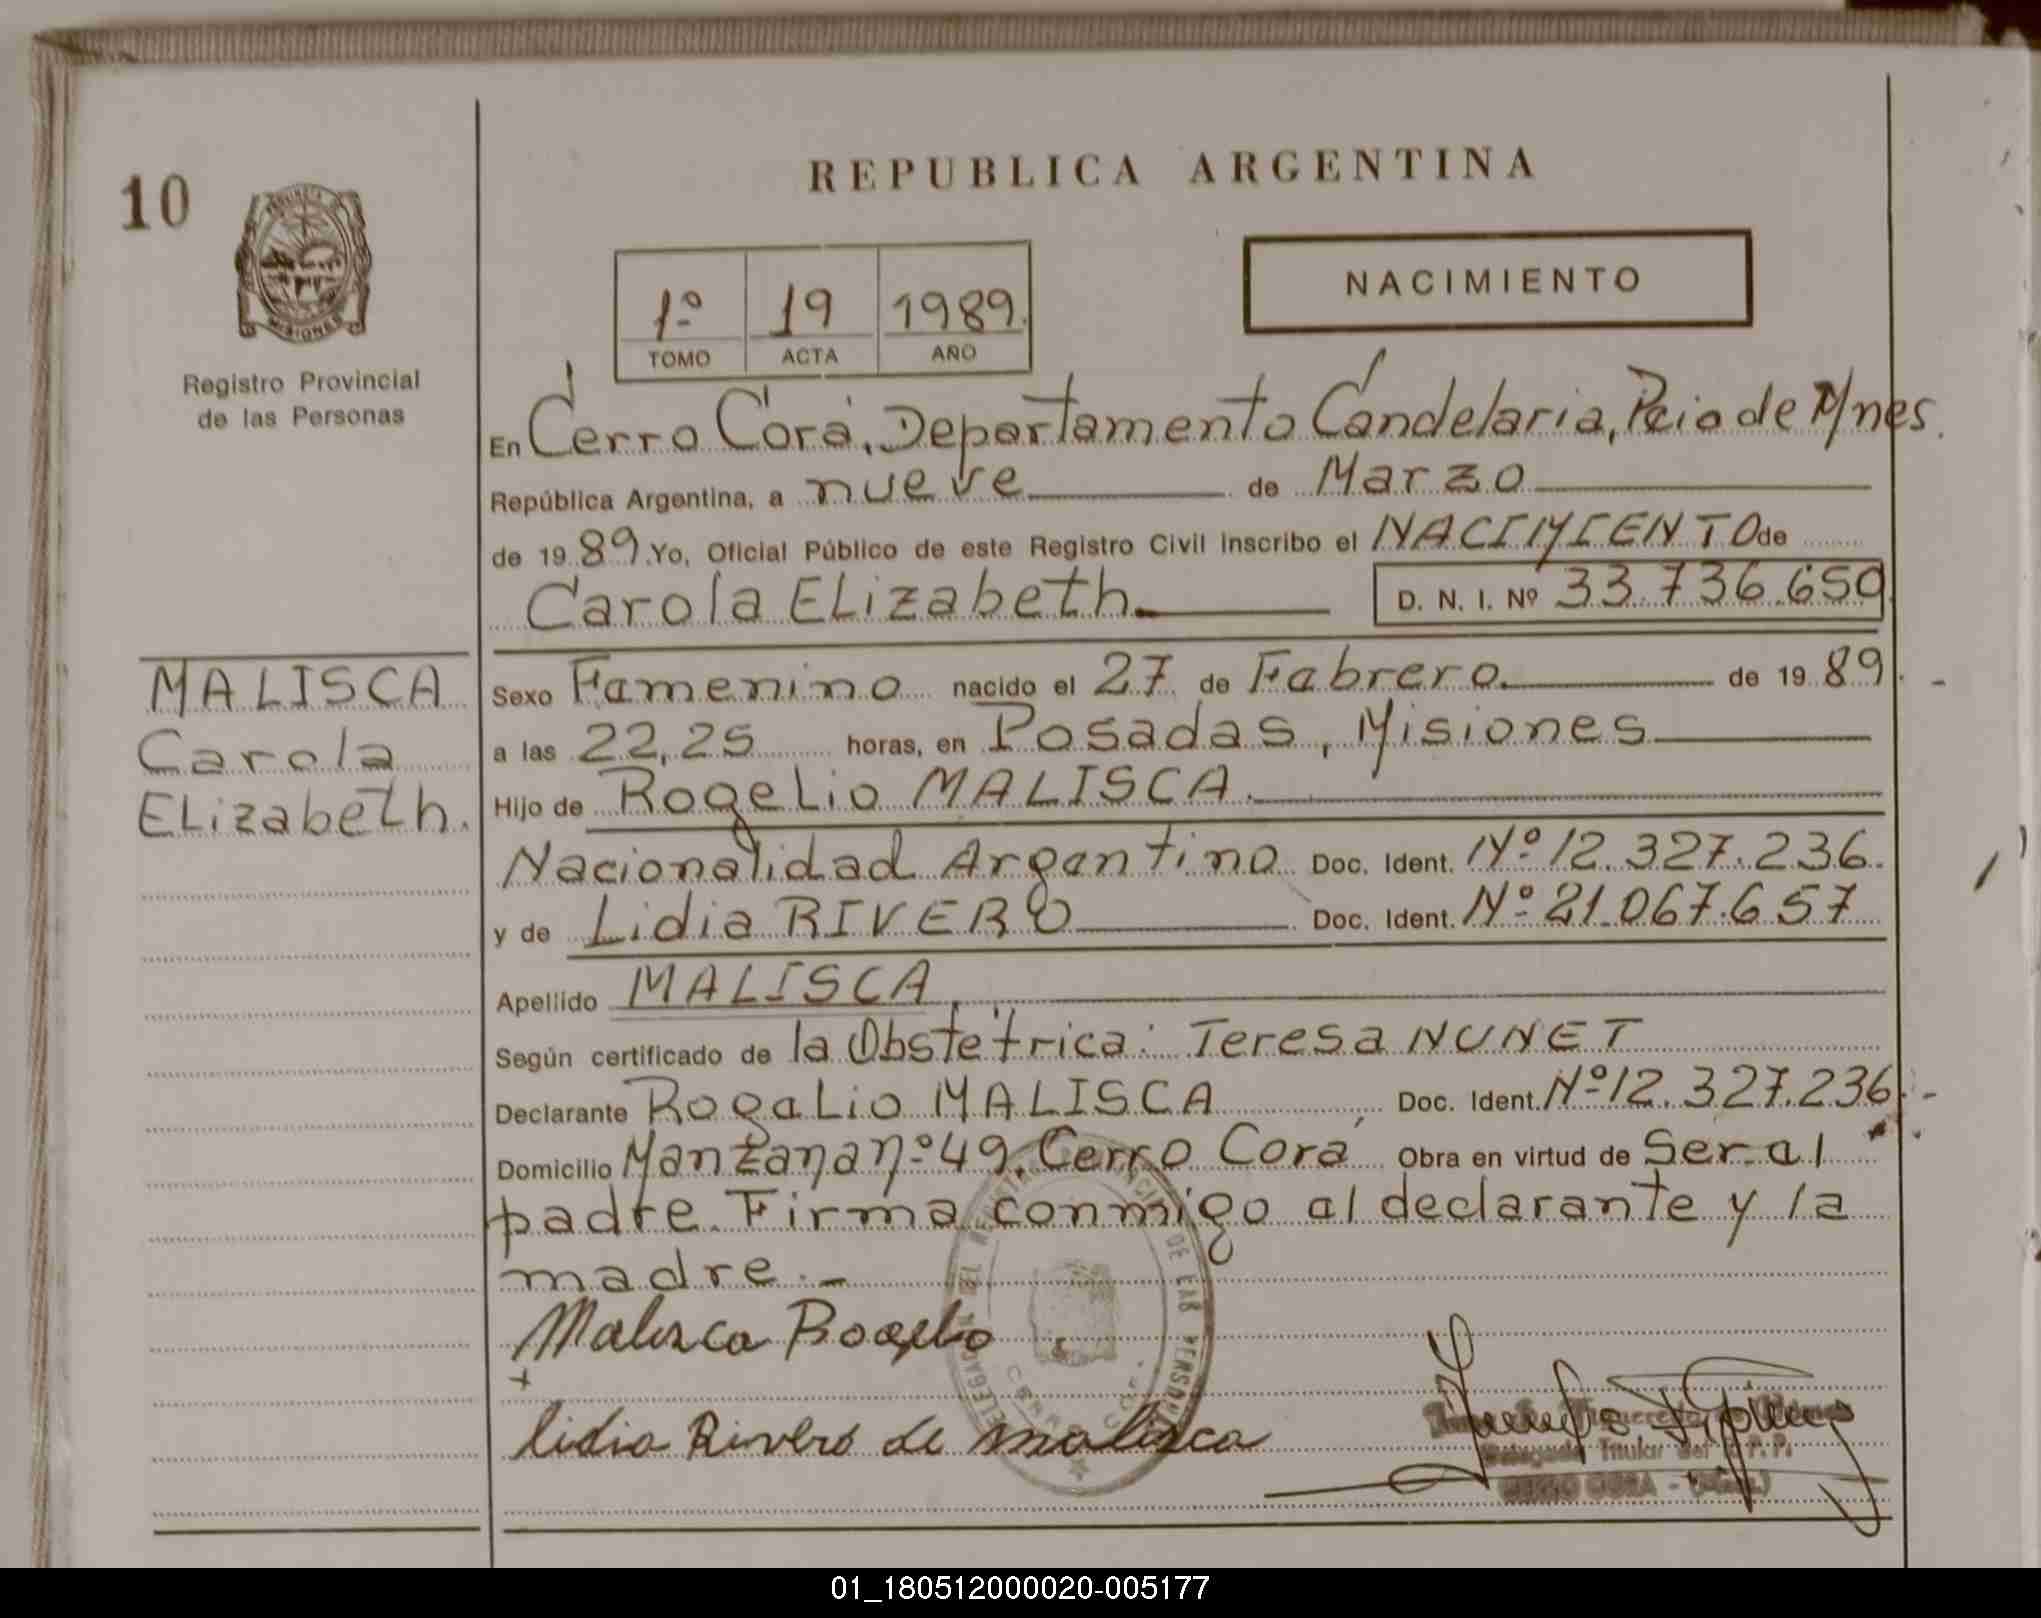 REPUBLICA ARGENTINA
10
PROVINCIA
MISIONES
Registro Provincial
de las Personas
1º 19 1989.
TOMO ACTA AÑO
NACIMIENTO
En Cerro Corá, Departamento Candelaria, Pcia de Mnes.
República Argentina, a nueve de Marzo
de 19 89. Yo, Oficial Público de este Registro Civil inscribo el NACIMIENTO de
Carola ELizabeth. D. N. I. Nº 33.736.650
MALISCA
Carola
ELizabeth.
Sexo Femenino nacido el 27 de Febrero de 19 89.-
a las 22,25 horas, en Posadas, Misiones
Hijo de RogeLio MALISCA.
Nacionalidad Argentino Doc. Ident. Nº 12.327.236.
y de Lidia RIVERO Doc. Ident. Nº 21.067.657
Apellido MALISCA
Según certificado de la Obstétrica: Teresa NUNET
Declarante RogeLio MALISCA, Doc. Ident. Nº 12.327.236.-
Domicilio Manzana nº 49, Cerro Corá Obra en virtud de Ser al
padre. Firma conmigo al declarante y la
madre.-
Malisca Rogelio
+
lidia Rivero de malisca
Titular del R.P.P.
CERRO CORA - (Mnes.)
01_180512000020-005177